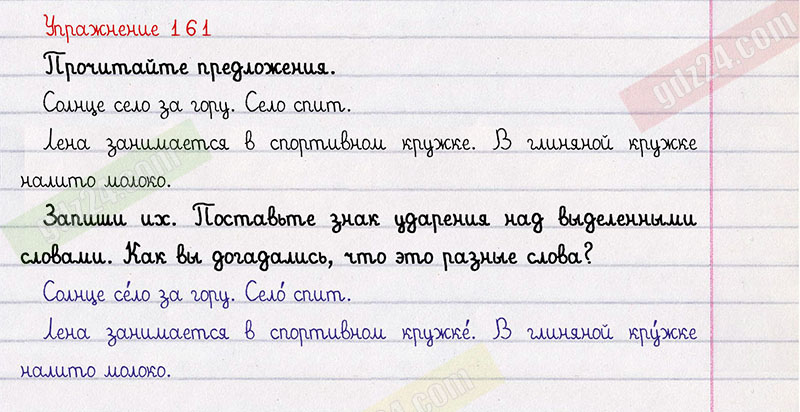 Упражнение 161
Прочитайте предложения.
Солнце село за гору. Село спит.
Лена занимается в спортивном кружке. В глиняной кружке
налито молоко.
Запиши их. Поставьте знак ударения над выделенными
словами. Как вы догадались, что это разные слова?
Солнце се́ло за гору. Село́ спит.
Лена занимается в спортивном кружке́. В глиняной кру́жке
налито молоко.
gdz24.com
gdz24.com
gdz24.com